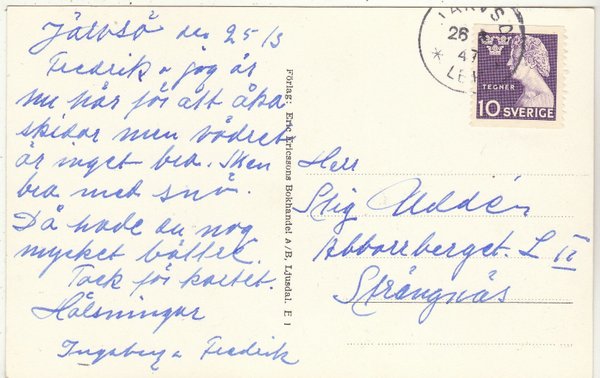 Järvsö den 25/3
Fredrik o jag är
nu här för att åka
skidor men vädret
är inget bra. Men
bra med snö.
Då hade du nog
mycket bättre.
Tack för kortet.
Hälsningar
Ingeborg o Fredrik
Förlag: Eric Ericssons Bokhandel A/B, Ljusdal. E 1
JÄRVSÖ
26
47
TEGNÉR
10 SVERIGE
Herr
Stig
Abborrberget. L II
Strängnäs